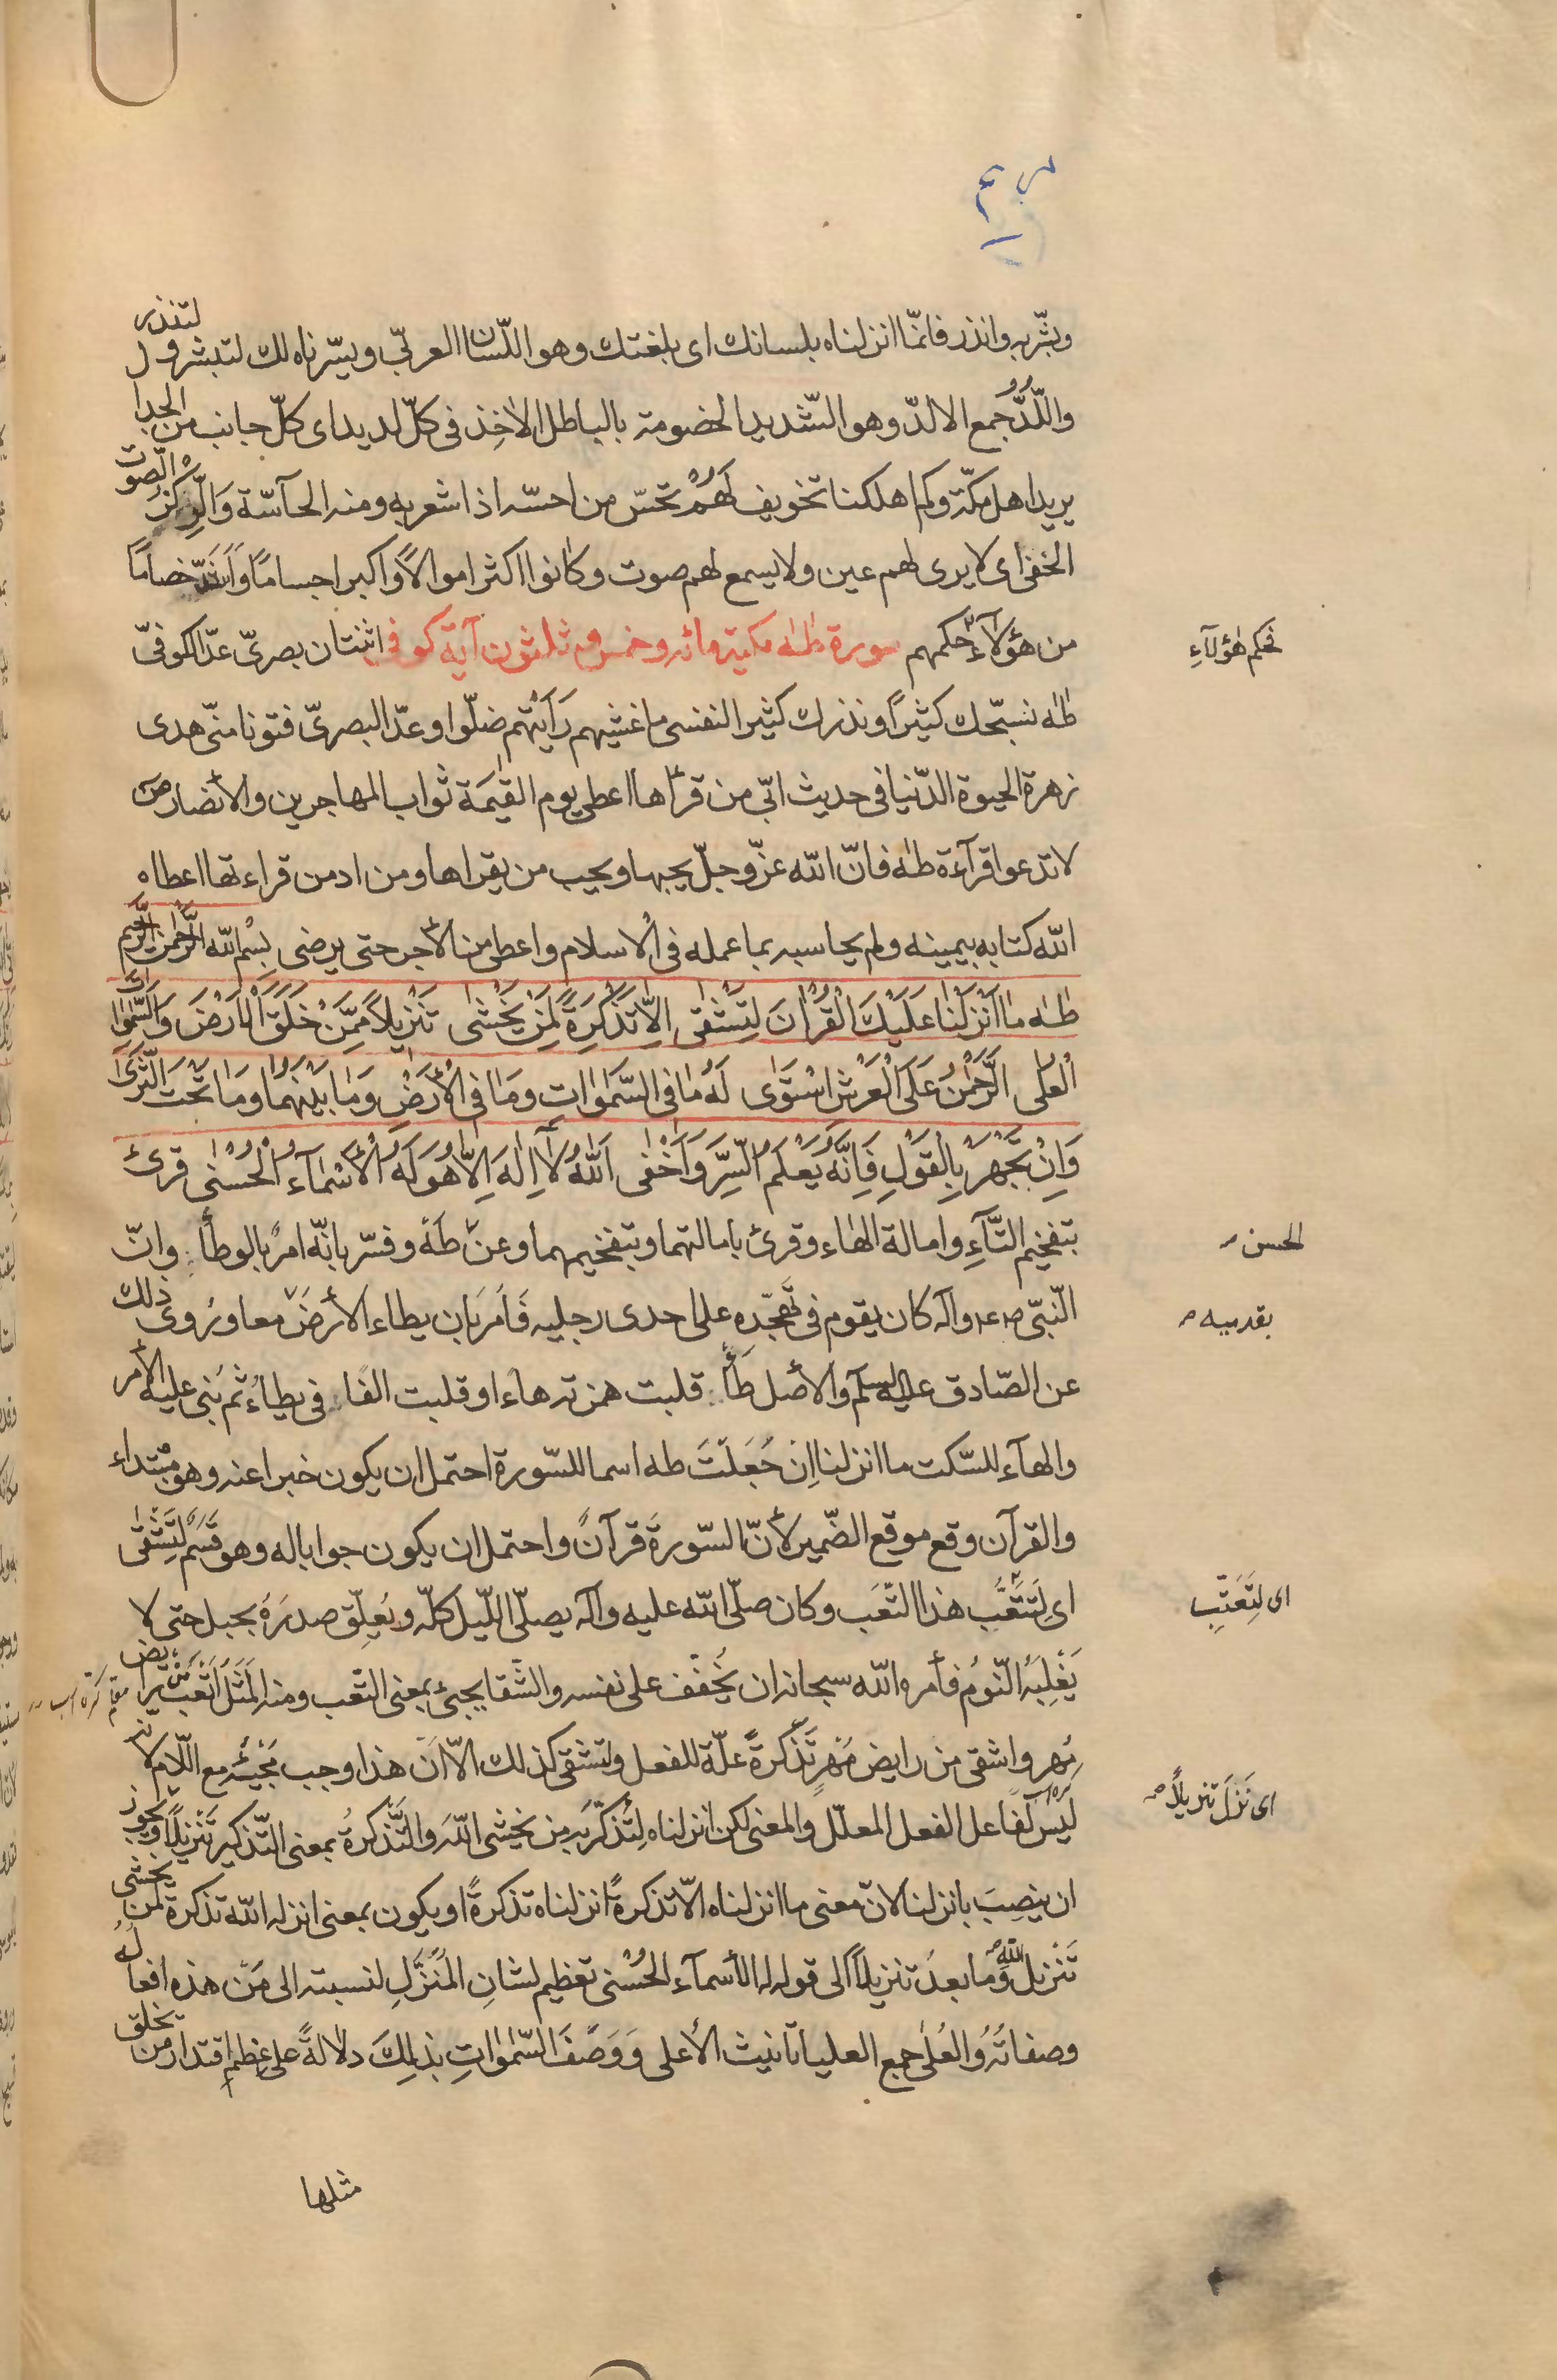 مريم
وبشّر به وانذر فانمّا انزلناه بلسانك اى بلغتك وهو اللّسان العربّى ويسّرناه لك لتبشر و لتنذر
واللُّدُّ جمع الالدّ وهو الشّديد الخصومة بالباطل الاٰخِذ فى كلّ لديد اى كلّ جانب من الجدا
يريد اهل مكّة وكم اهلكنا تخويف لهُمْ تحسّ من احسّه اذا شعر به ومنه الحآسّة وَالرِّكْزُ الصوت
الخفىّ اى لا يرى لهم عين ولا يسمع لهم صوت وكانوا اكثر اموالاً واكبر اجسامًا وَاَشَدّ خصامًا
من هؤلآءِ حكمهم سورة طٰه مكيّة مائه وخمس و ثلثون آية كوفى اثنتان بصرىّ عدّ الكوفىّ
فحكم هٰؤلآءِ
طٰه نسبّحك كثيرًا ونذكرك كثيرا لنفسى ما غشيهم رَاَيْتهم ضلّوا وعدّ البصرىّ فتونا منّى هدى
زهرة الحيوة الدّنيا فى حديث ابّى من قرأها اعطى يوم القيٰمَة ثواب المهاجرين والأنصار ص
لا تدعوا قرآءة طٰه فانّ الله عزّ وجلّ يحبها ويحب من يقراها ومن ادمن قراءتها اعطاه
الله كتابه بيمينه ولم يحاسبه بما عمله فى الاسلام واعطى من الأجر حتى يرضى بِسْمِ اللّه الرَّحْمٰن الرَّحيم
طٰه مٰا اَنْزَلْنٰا عَلَيْكَ الْقُرْاٰنَ لِتَشْقىٰ اِلاّٰ تَذْكِرَةً لِمَنْ يَخْشىٰ تَنْزيلاً مِمَّنْ خَلَقَ الْاَرْضَ وَالسَّمٰوٰاتِ
الْعلىٰ الرَّحْمٰنُ عَلَى الْعَرْشِ اسْتَوٰى لَهُ مٰا فِى السَّمٰوٰاتِ وَمٰا فِى الْأَرْضِ وَمٰا بَيْنَهُمٰا وَمٰا تَحْتَ الثَّرىٰ
وَاِنْ تَجْهَرْ بِالْقَوْلِ فَاِنَّهُ يَعْلَمُ السِّرَّ وَاَخْفىٰ اَللّٰهُ لاٰ اِلٰهَ اِلاّٰ هُوَ لَهُ الْأَسْمٰآءُ الْحُسْنىٰ قرئ
بتفخيم الطّآءِ وامالة الهٰاء وقرئ بامالتهما وبتفخيمهما وعن طَهْ وفسّر بانّه امرٌ بالوطأ وانّ
الحسن
النّبىّ ص ع وآله كان يقوم فى تهجّده على احدى رجليه فَاُمر بَان يطاء الأرضَ معا ورُوى ذلك
بقدميه
عن الصّادق عليه السلم والأصل طَأْ قلبت همزته هاءً او قلبت الفًا فى يطاءُ ثم بُنى عليه الأمر
والهآء للسّكت ما انزلنا اِن جُعِلَتْ طه اسما للسّورة احتمل ان يكون خبرا عنه وهو مبتداء
والقرآن وقع موقع الضّمير لأنّ السّورةَ قرآنٌ واحتمل ان يكون جوابا له وهو قَسَمٌ لِتَشْقىٰ
اى لتتعَّب هذا التّعَب وكان صلّى الله عليه وآله يصلّى اللّيل كلّه ويُعلِّق صدرَهُ بحبل حتى لا
اى لِتَعَتّبِ
يَغْلِبَهُ النّوُم فأمره الله سبحانه ان يُخفِّف على نفسه والشّقا يجيئ بمعنى التّعب ومنه المَثَلُ اَتْعَب من رايض
مُهر واشقى من رايض مُهرٍ تَذْكرةً علّة للفعل ولتشقى كذلك الاّ انّ هذا وجب مَجيئه مع اللّام لأنه
لَيْسَ لفاعل الفعل المعلّل والمعنى لكن انزلناه لِتُذكّرَ به من يخشى اللّهَ والتَّذْكرةُ بمعنى التّذكير تَنْزيلاً ويجوز
اى نَزَلَ تنزيلاً
ان ينصِبَ بانزلنا لانّ معنى ما انزلناه الاّ تذكرةً انزلناه تذكرةً او يكون بمعنى انزله الله تذكرةً لمن يخشى
تَنْزيل الله وَما بعدَ تنزيلاً الى قوله له الأسمآء الحُسْنى تعظيم لشانِ المُنَزَّلِ لنسبته الى مَنْ هذه افعالُه
وصفاتُهُ وَالعُلىٰ جمع العليا تأنيث الأعلى وَوَصَفَ السّمٰوٰاتِ بذلِكَ دلالةً على عِظَمِ اقتدار من يخلق
مثلها